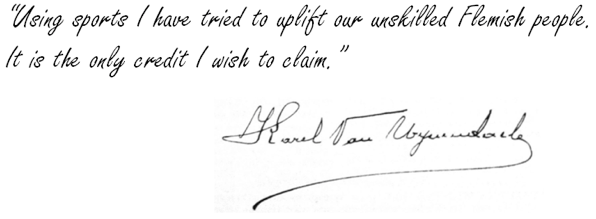 “Using sports I have tried to uplift our unskilled Flemish people.
It is the only credit I wish to claim.”
Karel Van Wynendaele